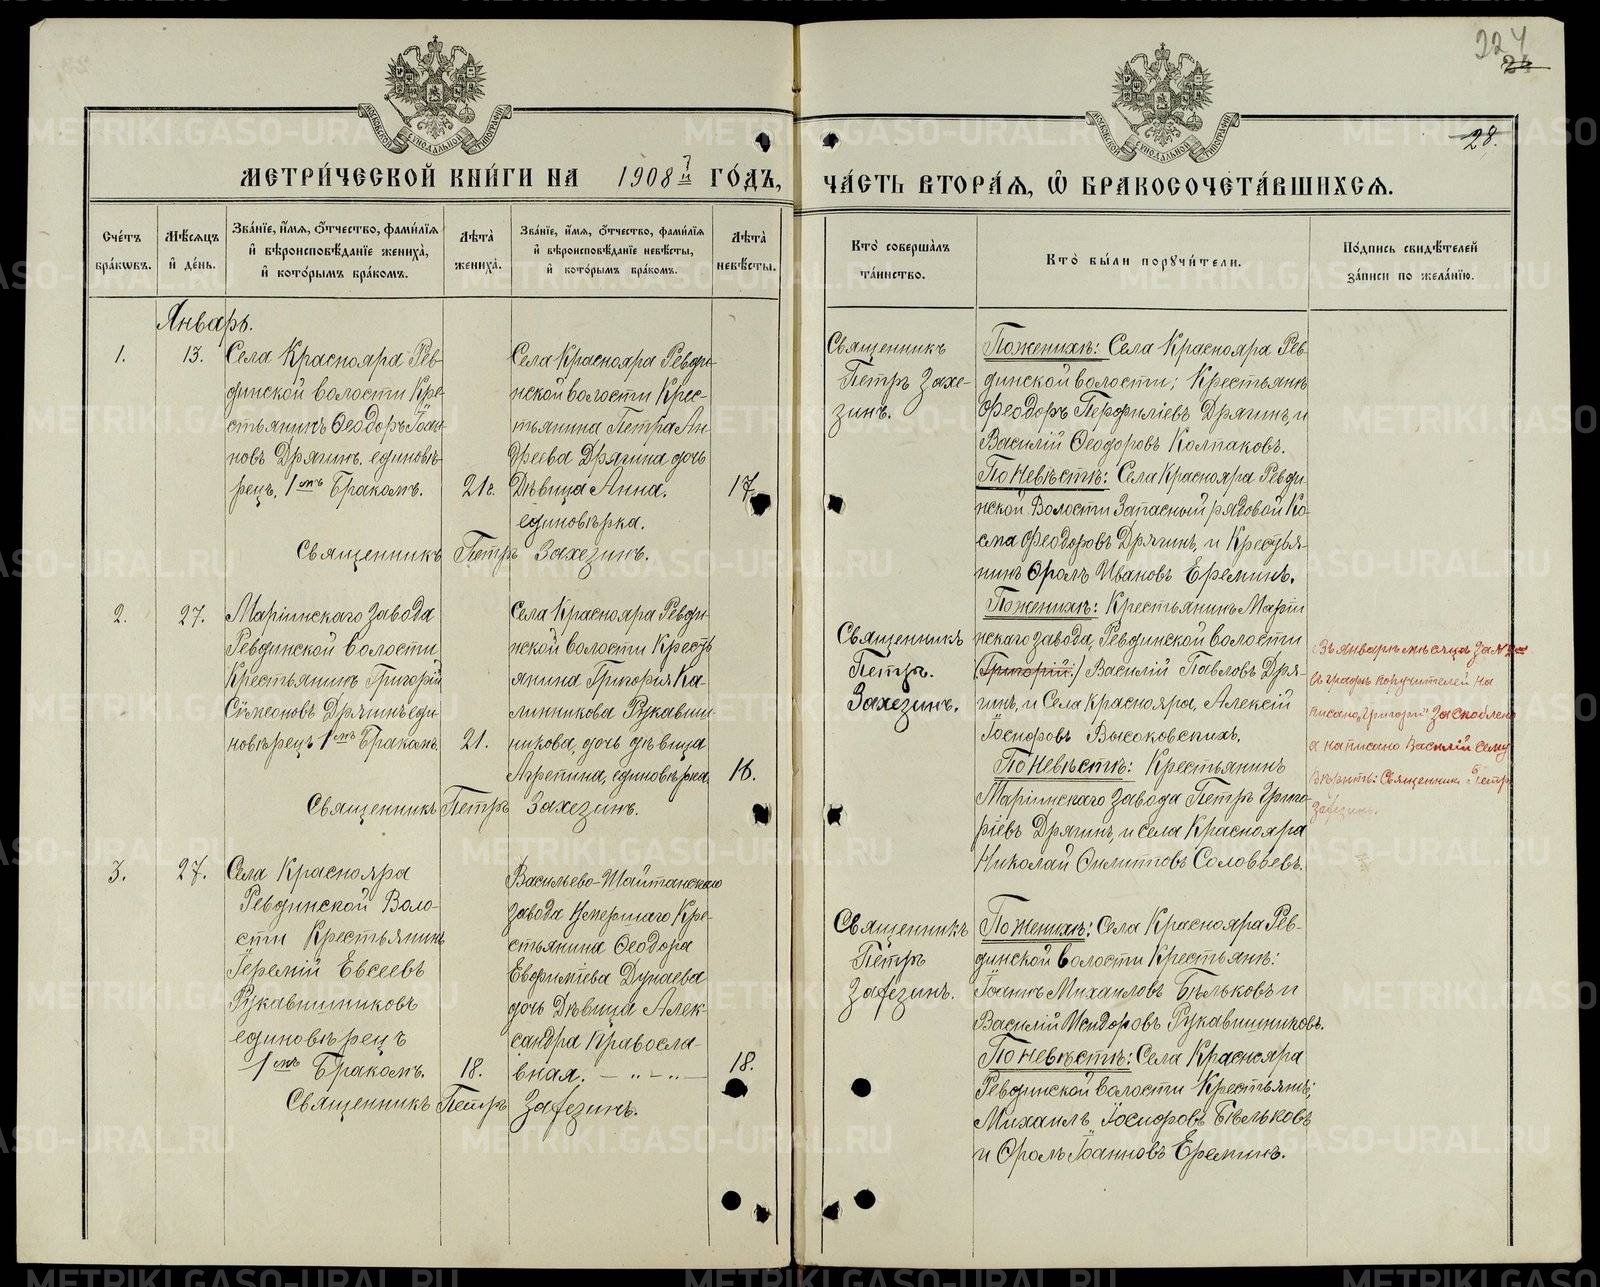 224
28.
МЕТРИ́ЧЕСКОЙ КНИ́ГИ НА 1908й ГО́ДЪ,
ЧА́СТЬ ВТОРА́Я, Ѡ БРАКОСОЧЕТА́ВШИХСЯ.
Сче́тъ бра́кѡвъ.
Мѣ́сяцъ и де́нь.
Зва́нїе, и́мя, ѻ́тчество, фами́лїя
и вѣроисповѣ́данїе жениха̀,
и кото́рымъ бра́комъ.
Лѣ́та̀ жениха̀.
Зва́нїе, и́мя, ѻ́тчество, фами́лїя
и вѣроисповѣ́данїе невѣ́сты,
и кото́рымъ бра́комъ.
Лѣ́та̀ невѣ́сты.
Кто̀ соверша́лъ та́инство.
Кто̀ бы́ли порꙋчи́тели.
По́дпись свидѣ́телей
за́писи по жела́нїю.
Январь.
1.
13.
Села Краснояра Рев-
динской волости Кре-
стьянинъ Ѳеодоръ Іоан-
новъ Дрягинъ. единовѣ-
рецъ, 1мъ Бракомъ.
21г.
Села Краснояра Ревди-
нской волости Крес-
тьянина Петра Ан-
дреева Дрягина дочь
Дѣвица Анна.
единовѣрка.
17.
Священникъ Петръ Захезинъ.
Священникъ
Петръ Захе-
зинъ.
По женихѣ: Села Краснояра Рев-
динской волости; Крестьянъ
Феодоръ Перфиліевъ Дрягинъ, и
Василій Ѳеодоровъ Колпаковъ.
По невѣстѣ: Села Краснояра Ревди-
нской Волости Запасный рядовой Ко-
сма Феодоровъ Дрягинъ, и Крестья-
нинъ Фролъ Ивановъ Ереминъ.
2.
27.
Маріинскаго завода
Ревдинской волости
Крестьянинъ Григорій
Сѵмеоновъ Дрягинъ еди-
новѣрецъ 1мъ Бракомъ.
21.
Села Краснояра Ревди-
нской волости Кресть
янина Григорія Ка-
линникова Рукавиш-
никова, дочь дѣвица
Агрепина, единовѣрка
16.
Священникъ Петръ Захезинъ.
Священникъ
Петръ.
Захезинъ.
По женихѣ: Крестьянинъ Марiи
нскаго завода, Ревдинской волости
(Григорій:) Василій Павловъ Дря-
гинъ, и Села Краснояра, Алексій
Іосифовъ Высоковскихъ.
По Невѣстѣ: Крестьянинъ
Маріинскаго Завода Петръ Григо-
ріевъ Дрягинъ, и села Краснояра
Николай Филиповъ Соловьевъ.
Въ январѣ мѣсяцѣ за №
въ графѣ поручителей на
писано "Григорій" Заскоблено
а написано Василій сему
вѣрить: Священникъ Петръ
Захезинъ.
3.
27.
Села Краснояра
Ревдинской Воло-
сти Крестьянинъ
Іеремій Евсеевъ
Рукавишниковъ
единовѣрецъ
1мъ Бракомъ.
18.
Васильево-Шайтанскаго
завода Умершаго Кре-
стьянина Ѳеодора
Евфиміева Дунаева
дочь Дѣвица Алек-
сандра Правосла-
вная. — „ — „ —
18.
Священникъ Петръ Захезинъ.
Священникъ
Петръ
Захезинъ.
По Женихѣ: Села Краснояра Рев-
динской волости Крестьянъ:
Іоаннъ Михаиловъ Бѣльковъ и
Василій Исидоровъ Рукавишниковъ.
По невѣстѣ: Села Краснояра
Ревдинской волости Крестьянъ;
Михаилъ Іосифовъ Бѣльковъ
и Фролъ Іоанновъ Ереминъ.